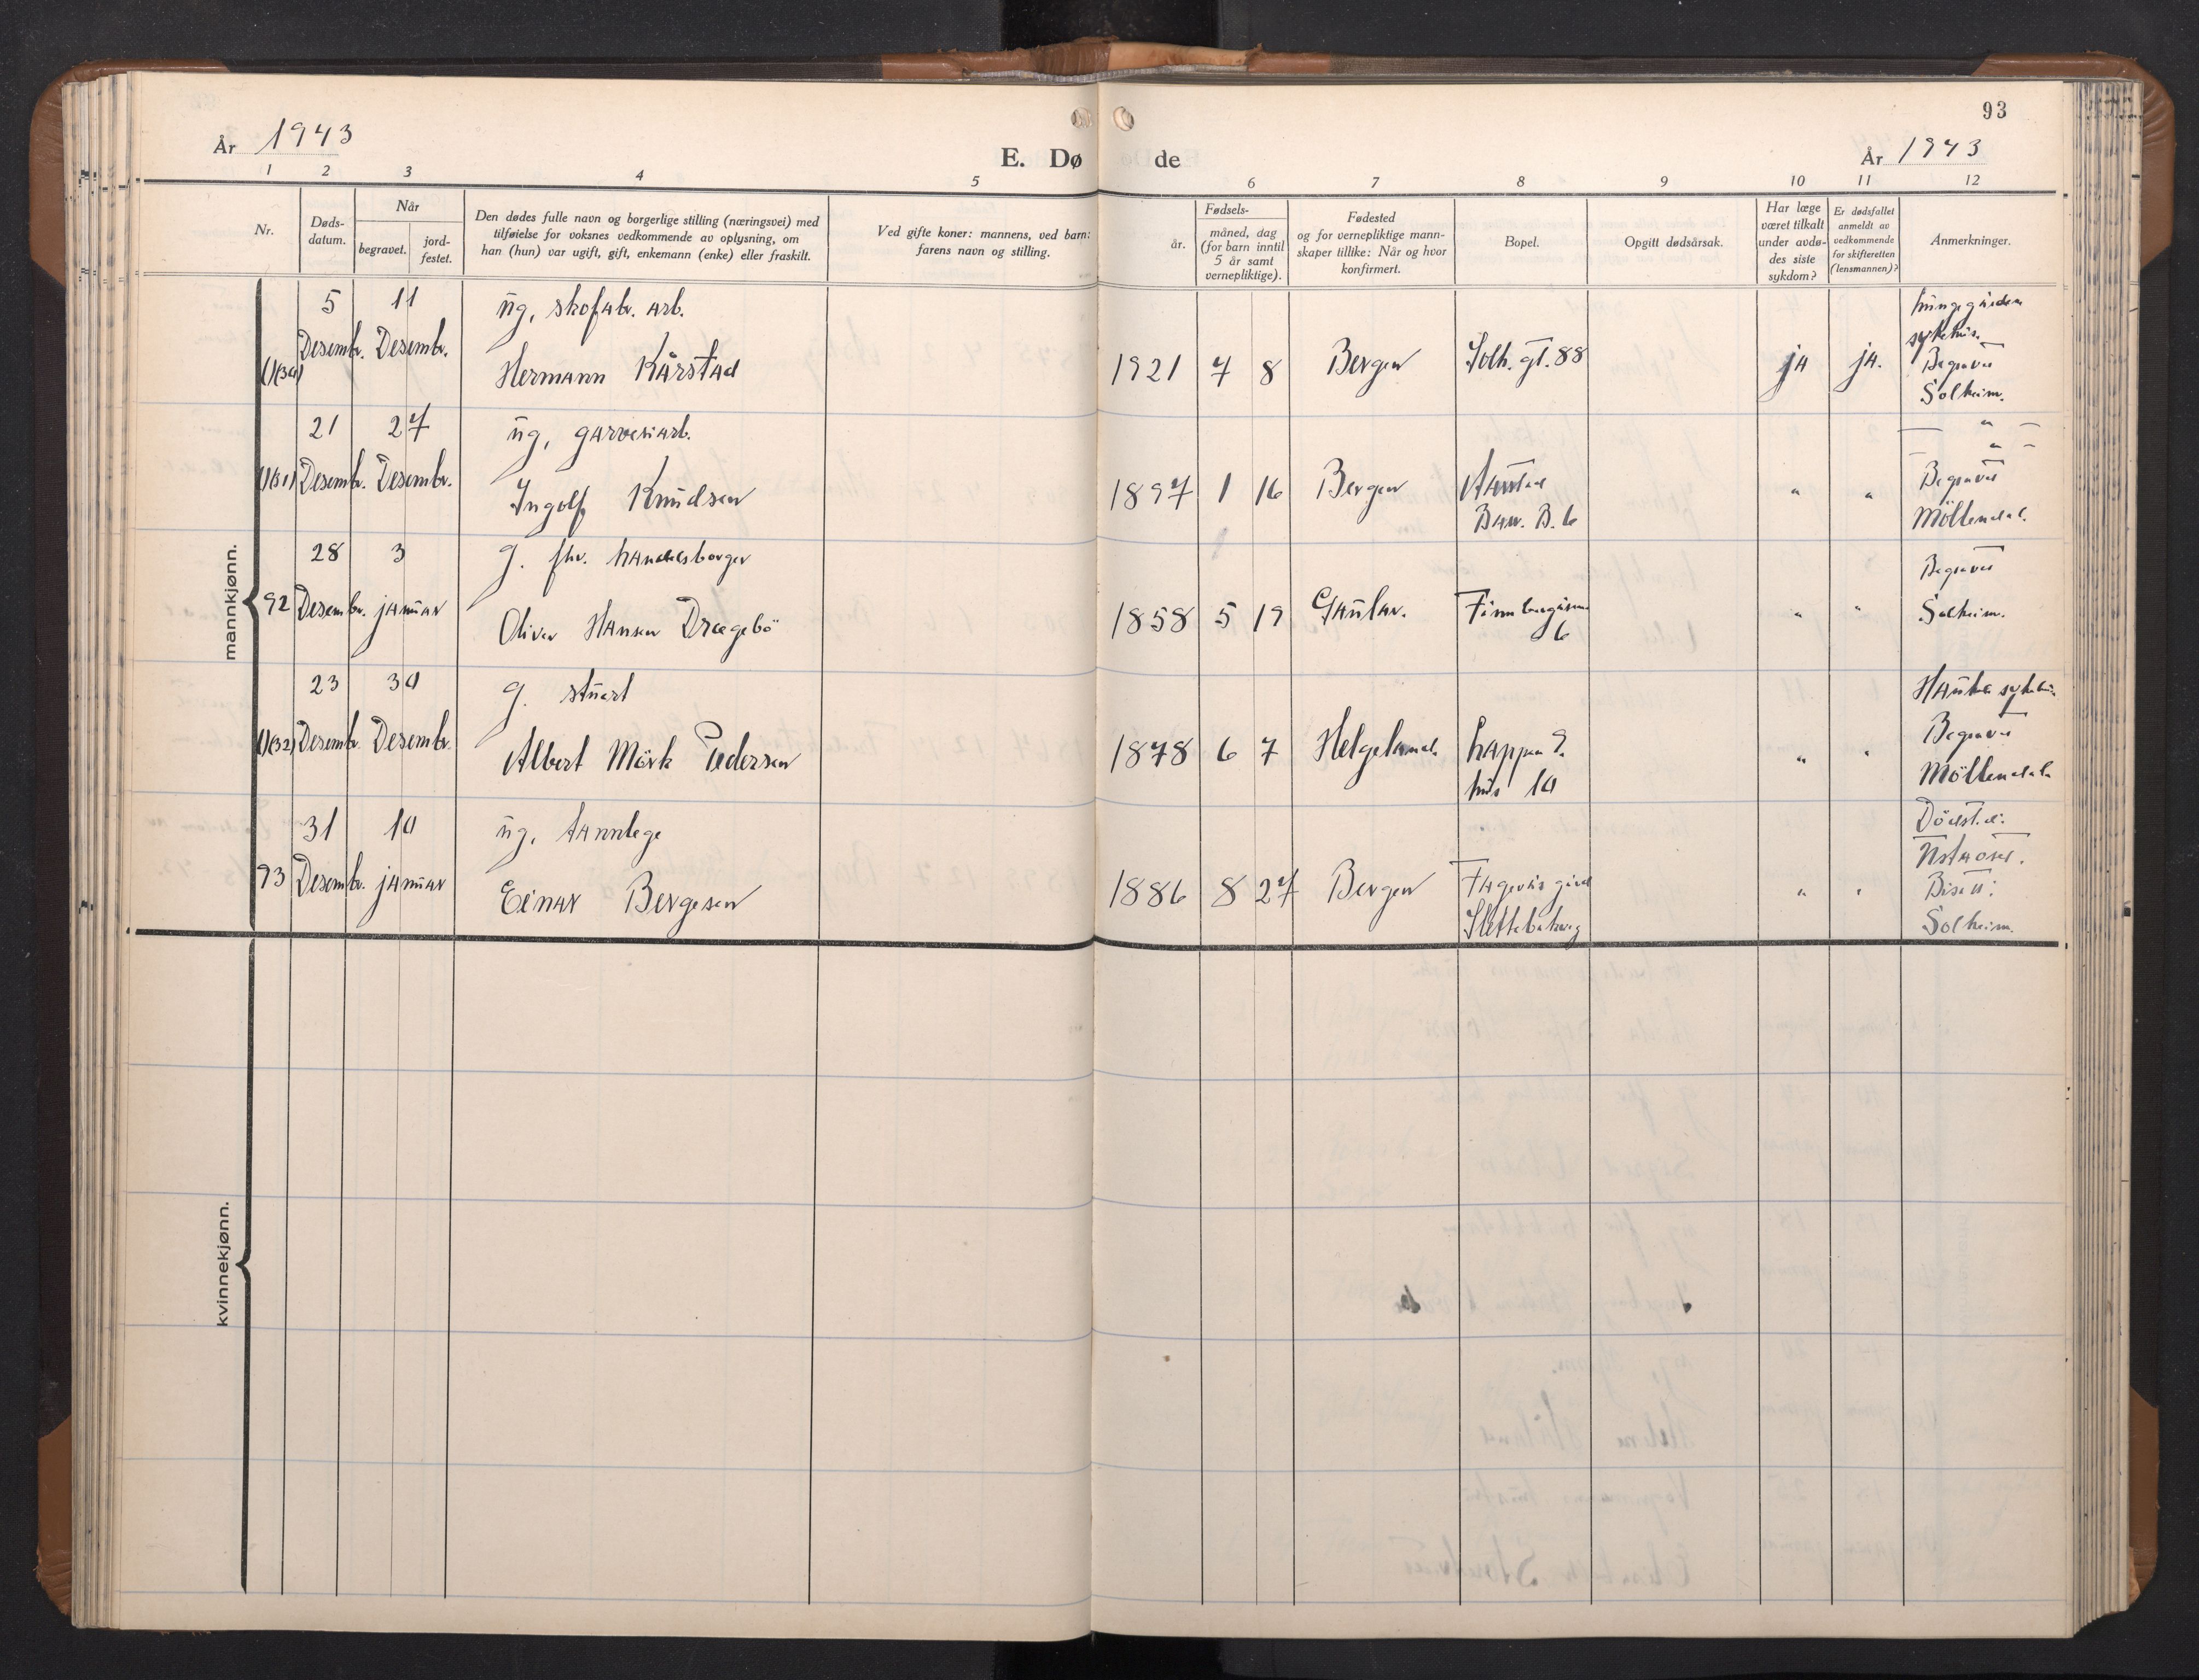 93
År 1943
E. Dø de
År 1943
1 2 3 4 5 6 7 8 9 10 11 12
Nr.
Døds-
datum.
Når
begravet.
jord-
festet.
Den dødes fulle navn og borgerlige stilling (næringsvei) med
tilføielse for voksnes vedkommende av oplysning, om
han (hun) var ugift, gift, enkemann (enke) eller fraskilt.
Ved gifte koner: mannens, ved barn:
farens navn og stilling.
år.
Fødsels-
måned, dag
(for barn inntil
5 år samt
vernepliktige).
Fødested
og for vernepliktige mann-
skaper tillike: Når og hvor
konfirmert.
Bopel.
Opgitt dødsårsak.
Har læge
været tilkalt
under avdø-
des siste
sykdom?
Er dødsfallet
anmeldt av
vedkommende
for skifteretten
(lensmannen)?
Anmerkninger.
mankjønn.
5 11 ug, skofabr. arb.
Desembr. Desembr.
()(30) Hermann Kårstad
1921 7 8 Bergen Solh. gt. 88 ja ja.
sykehus.
Begravet
Solheim.
21 27 ug, garveriarb.
()(31) Desembr. Desembr.
Ingolf Knudsen
1897 1 16 Bergen Årstad
Bar. B. 6
" "
— " —
— " —
Begravet
Möllendal.
28 3 g. fhv. handelsborger
92 Desembr. januar
Oliver Hansen Drægebö
1858 5 19 Gaular.
6
" "
Begravet
Solheim.
23 30 g. stuert
()(32) Desembr. Desembr.
Albert Mörk Pedersen
1878 6 7 Helgeland
hus 10
" "
Haukel. sykehus
Begravet
Möllendal
31 10 ug, tannlege
93 Desembr. januar
Einar Bergesen
1886 8 27 Bergen
" "
Dödst. d:
Ustaoset.
Bisatt:
Solheim.
kvinnekjønn.